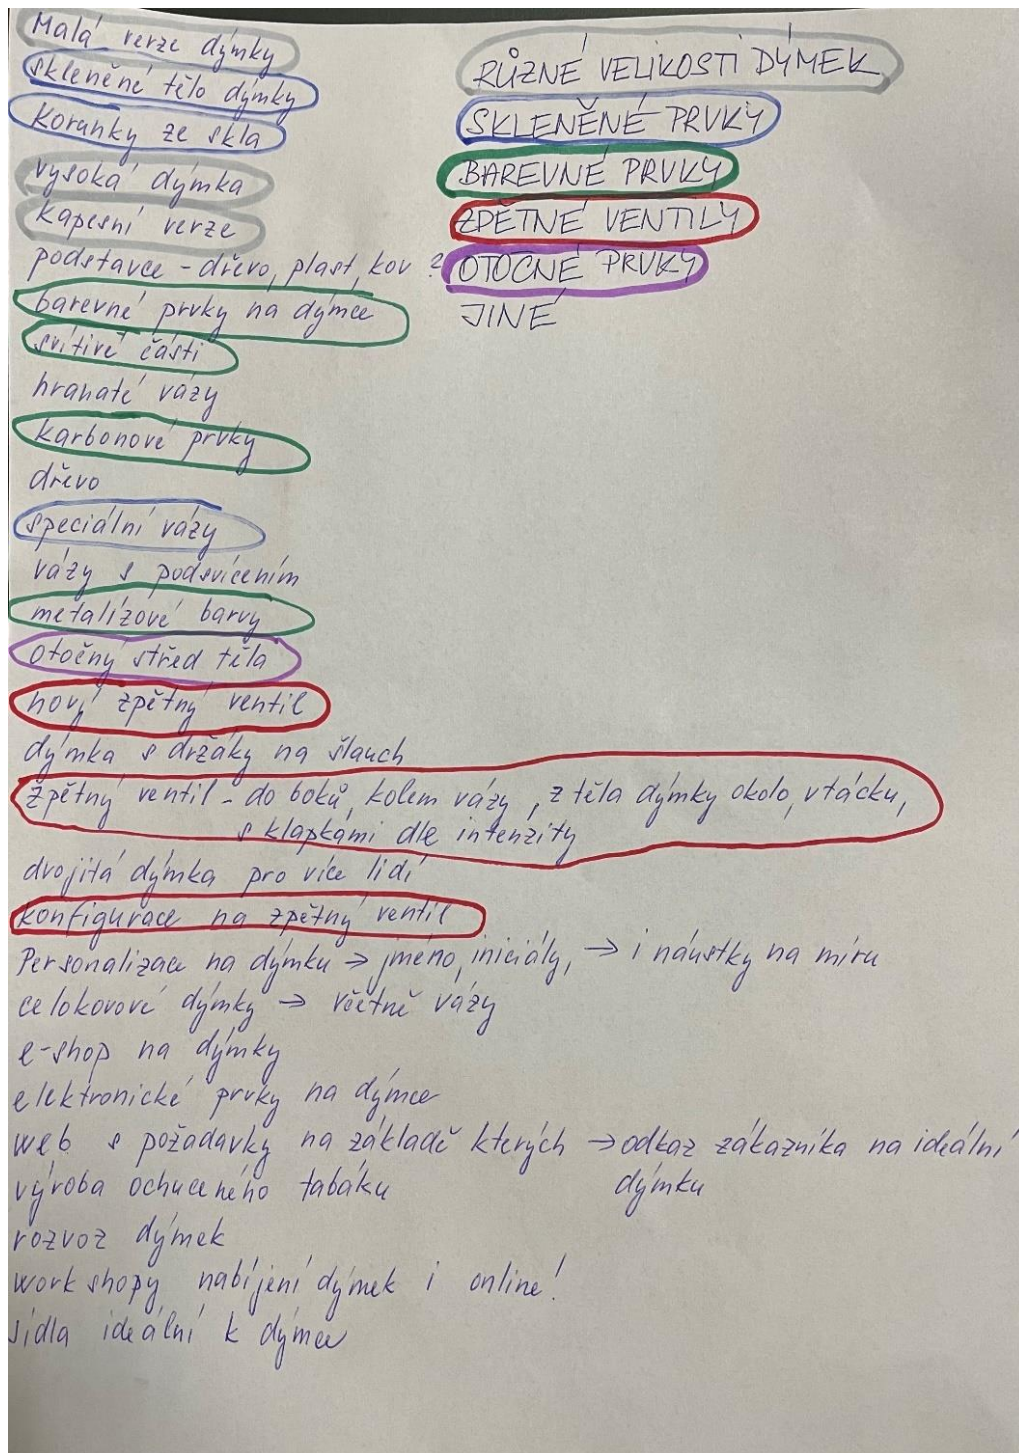 Malá verze dýmky
skleněné tělo dýmky
korunky ze skla
vysoká dýmka
kapesní verze
podstavce - dřevo, plast, kov ?
barevné prvky na dýmce
svítivé části
hranaté vázy
karbonové prvky
dřevo
speciální vázy
vázy s podsvícením
metalízové barvy
otočný střed těla
nový zpětný ventil
dýmka s držáky na šlauch
zpětný ventil - do boků, kolem vázy, z těla dýmky okolo, v tácku,
s klapkámi dle intenzity
dvojitá dýmka pro více lidí
konfigurace na zpětný ventil
Personalizace na dýmku → jméno, iniciály, → i náustky na míru
celokovové dýmky → včetně vázy
e-shop na dýmky
elektronické prvky na dýmce
web s požadavky na základě kterých → odkaz zákazníka na ideální
dýmku
výroba ochuceného tabáku
rozvoz dýmek
workshopy nabíjení dýmek i online!
jídla ideální k dýmce
RŮZNÉ VELIKOSTI DÝMEK
SKLENĚNÉ PRVKY
BAREVNÉ PRVKY
ZPĚTNÉ VENTILY
OTOČNÉ PRVKY
JINÉ